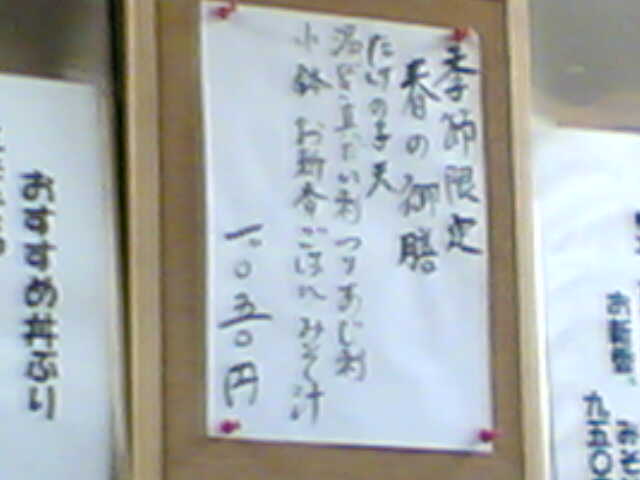 季節限定
春の御膳
たけの子天
活〆真だい刺 つりあじ刺
小鉢 お新香 ごはん みそ汁
一、〇五〇円
おすすめ丼ぶり
お新香、みそ
九五〇